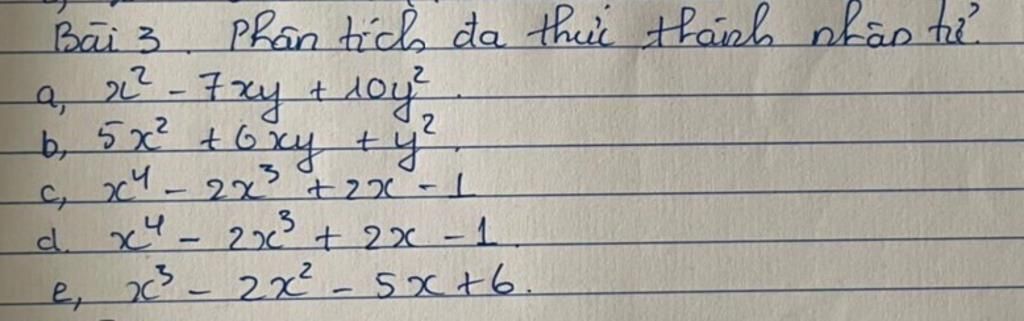 Bài 3. Phân tích đa thức thành nhân tử.
a, x² - 7xy + 10y².
b, 5x² + 6xy + y².
c, x⁴ - 2x³ + 2x - 1
d. x⁴ - 2x³ + 2x - 1.
e, x³ - 2x² - 5x + 6.